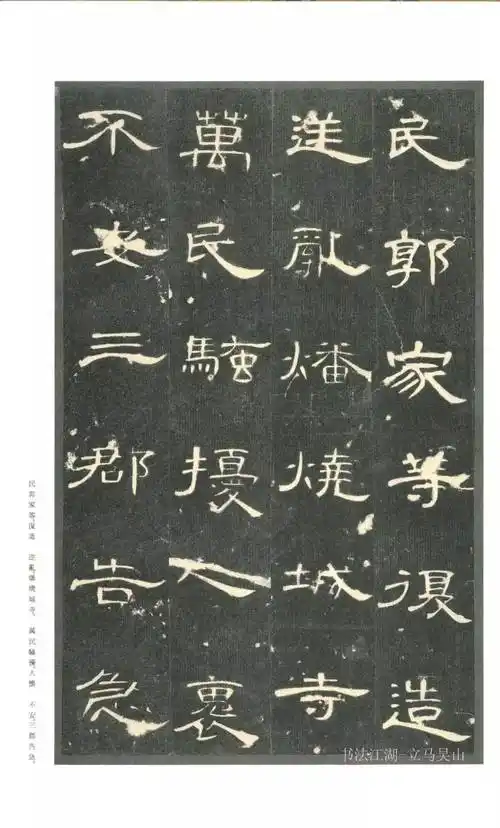 民郭家等復造
逆亂燔燒城寺
萬民騷擾人裹
不安三郡告急
民郭家等復造 逆亂燔燒城寺 萬民騷擾人懷 不安三郡告急
书法江湖-立马吴山